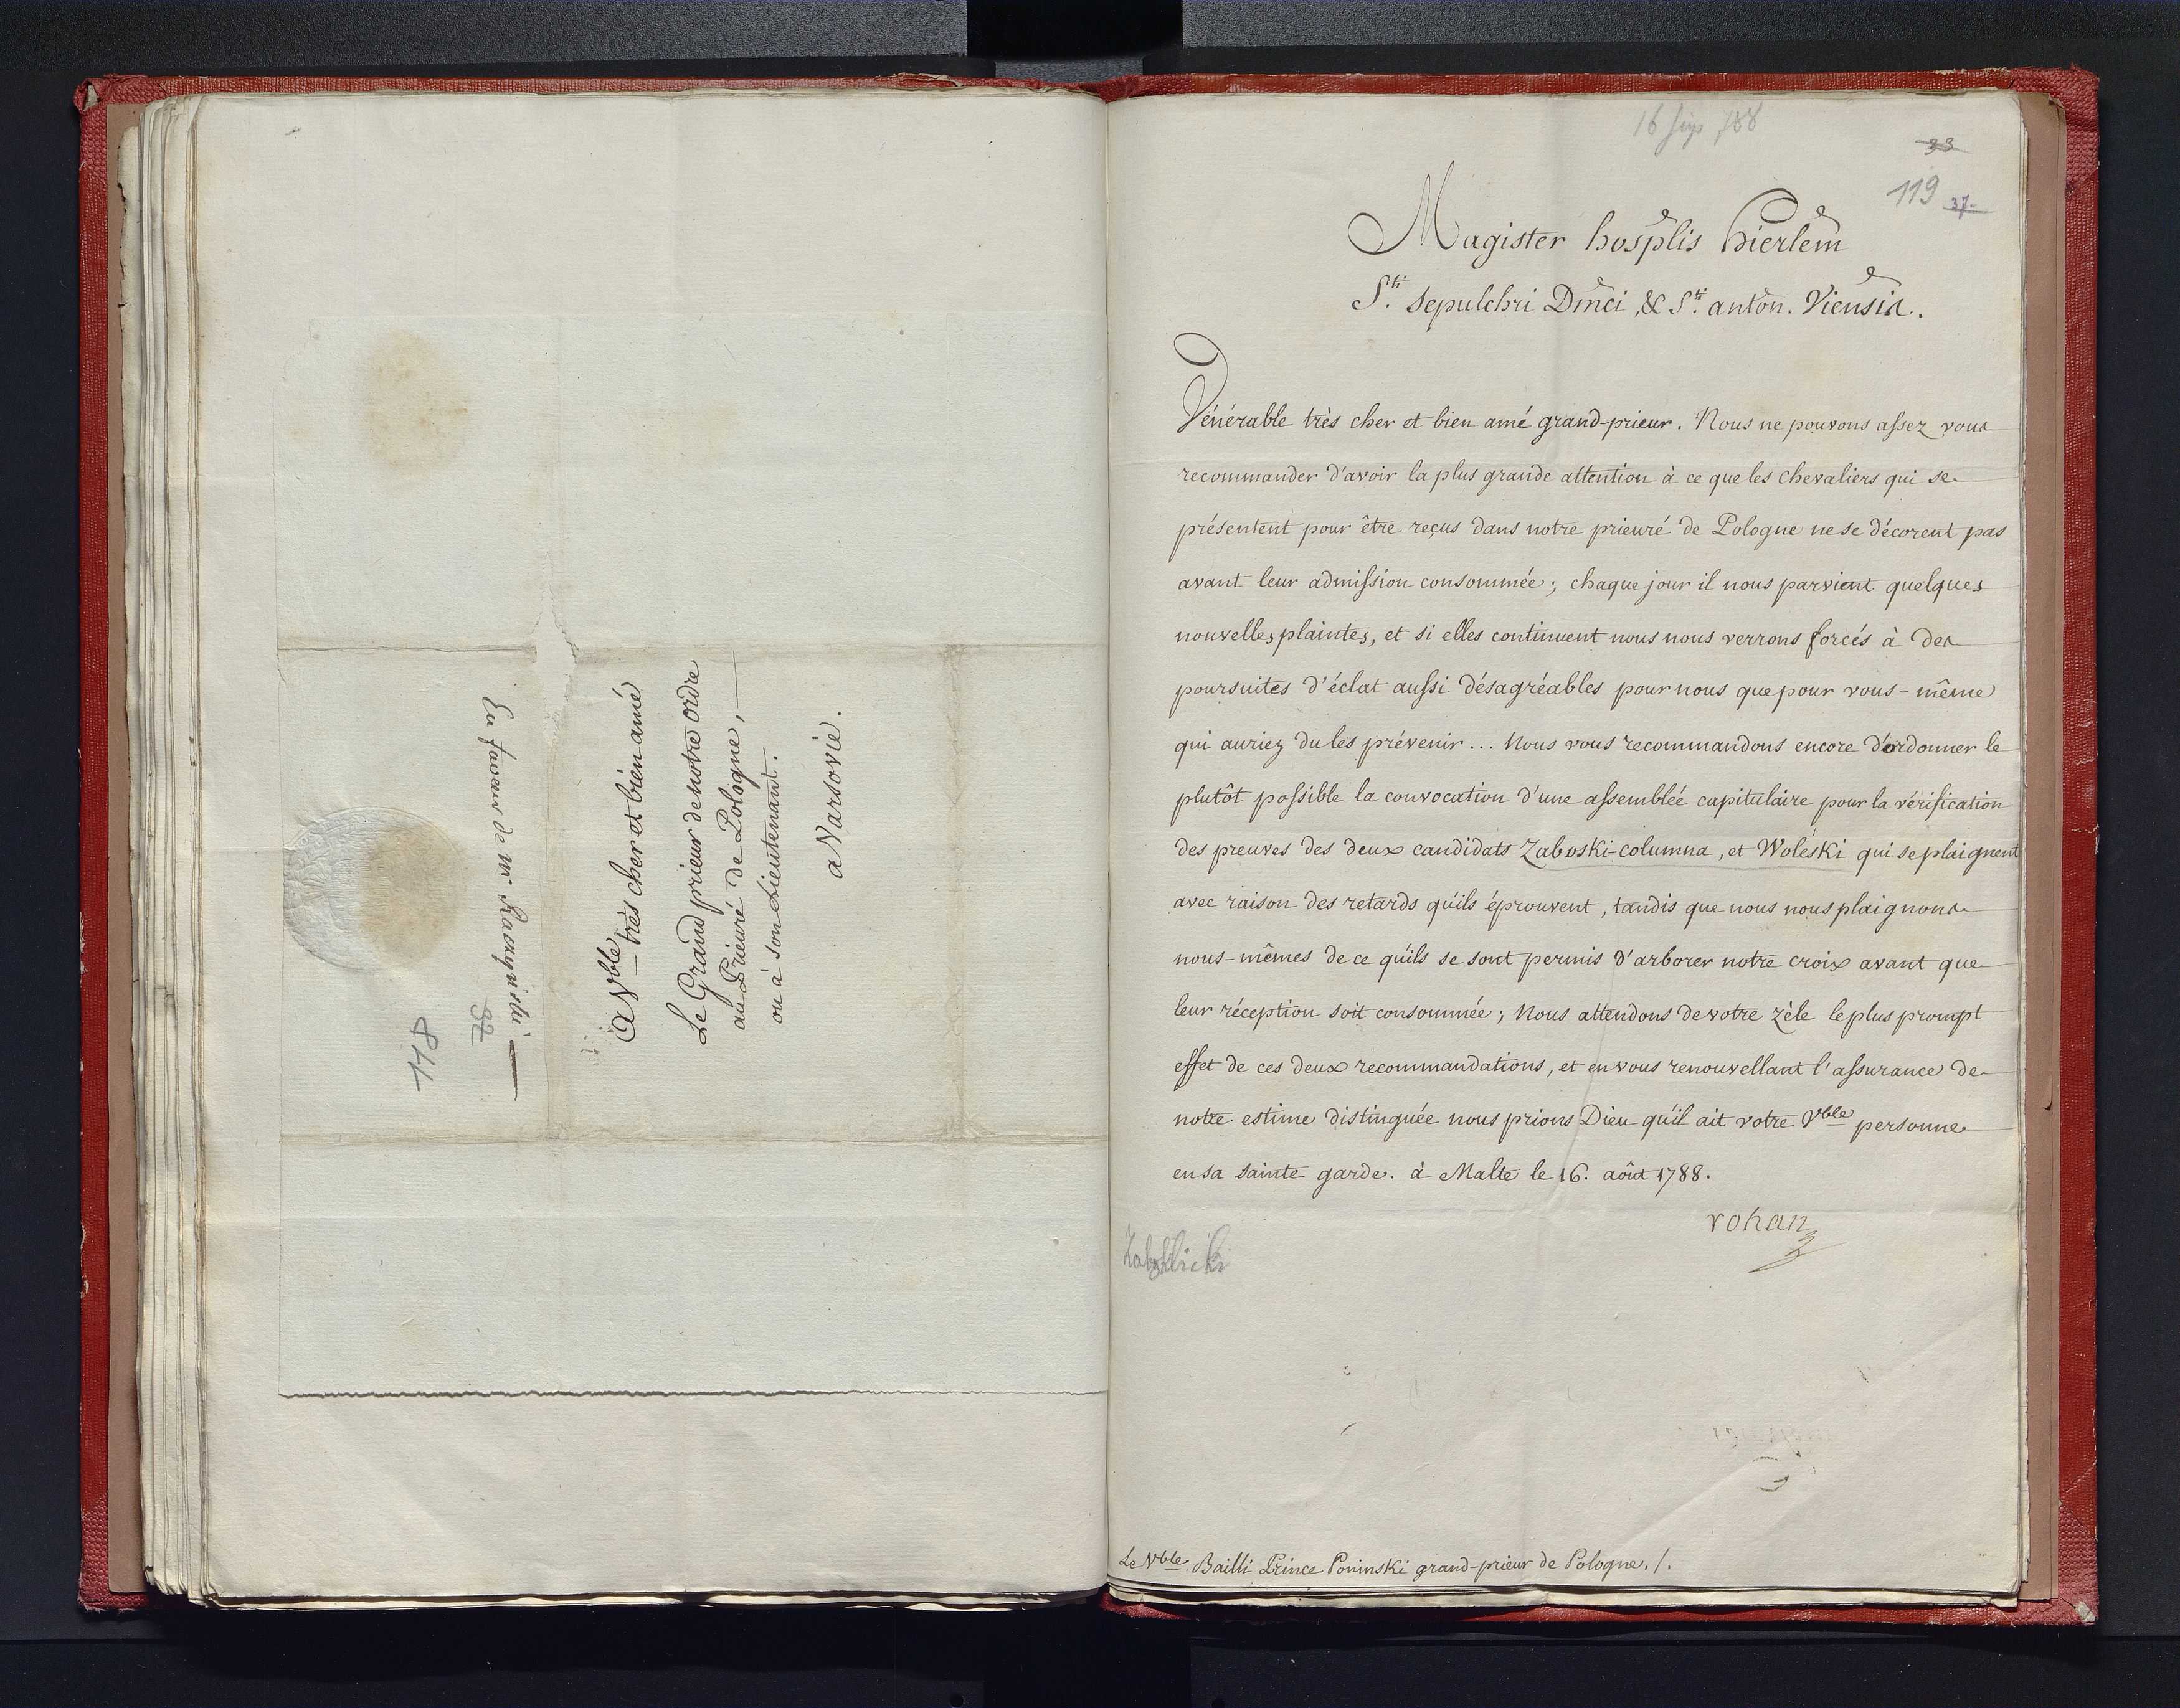 A Vble très cher et bien amé
Le Grand prieur de notre ordre
au Prieuré de Pologne,
ou à son Lieutenant.
a Varsovie.
En faveur de Mr Raczynski
32
118
16 Sier 788
33
119 37.
Magister hosplis hierlem
Sti. sepulchri Dmci, & Sti. anton. Viensis.
Vénérable très cher et bien amé grand-prieur. Nous ne pouvons assez vous
recommander d'avoir la plus grande attention à ce que les chevaliers qui se
présentent pour être reçus dans notre prieuré de Pologne ne se décorent pas
avant leur admission consommée; chaque jour il nous parvient quelques
nouvelles plaintes, et si elles continuent nous nous verrons forcés à des
poursuites d'éclat aussi désagréables pour nous que pour vous-même
qui auriez du les prévenir... Nous vous recommandons encore d'ordonner le
plutôt possible la convocation d'une assemblée capitulaire pour la vérification
des preuves des deux candidats Zaboski-columna, et Woleski qui se plaignent
avec raison des retards qu'ils éprouvent, tandis que nous nous plaignons
nous-mêmes de ce qu'ils se sont permis d'arborer notre croix avant que
leur réception soit consommée; Nous attendons de votre zèle le plus prompt
effet de ces deux recommandations, et en vous renouvellant l'assurance de
notre estime distinguée nous prions Dieu qu'il ait votre Vble personne
en sa sainte garde. à Malte le 16. aôut 1788.
rohan
Le Vble Bailli Prince Poninski grand-prieur de Pologne./.